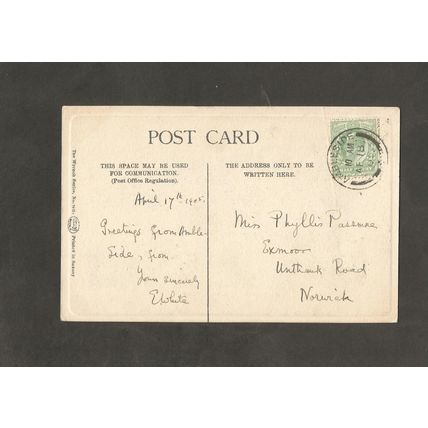 POST CARD
THIS SPACE MAY BE USED
FOR COMMUNICATION.
(Post Office Regulation).
THE ADDRESS ONLY TO BE
WRITTEN HERE.
April 17th 1905.
Greetings from Amble-
side, from
Yours sincerely
EWhite
Miss Phyllis Passmore
Exmoor
Unthank Road
Norwich
The Wyrench Series, No.
Printed in Saxony
AMBLESIDE
10 AM